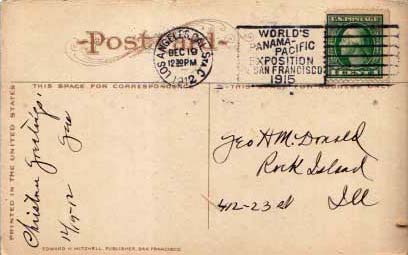 Post Card
LOS ANGELES, CAL. STA. C
DEC 19
12 30 PM
1912
WORLD'S
PANAMA-
PACIFIC
EXPOSITION
SAN FRANCISCO
1915
U.S. POSTAGE
CENT
THIS SPACE FOR CORRESPONDENCE
PRINTED IN THE UNITED STATES
Christmas Greetings
Geo
12/19-12
Geo H McDonald
Rock Island
412-23 st Ill
EDWARD H. MITCHELL, PUBLISHER, SAN FRANCISCO